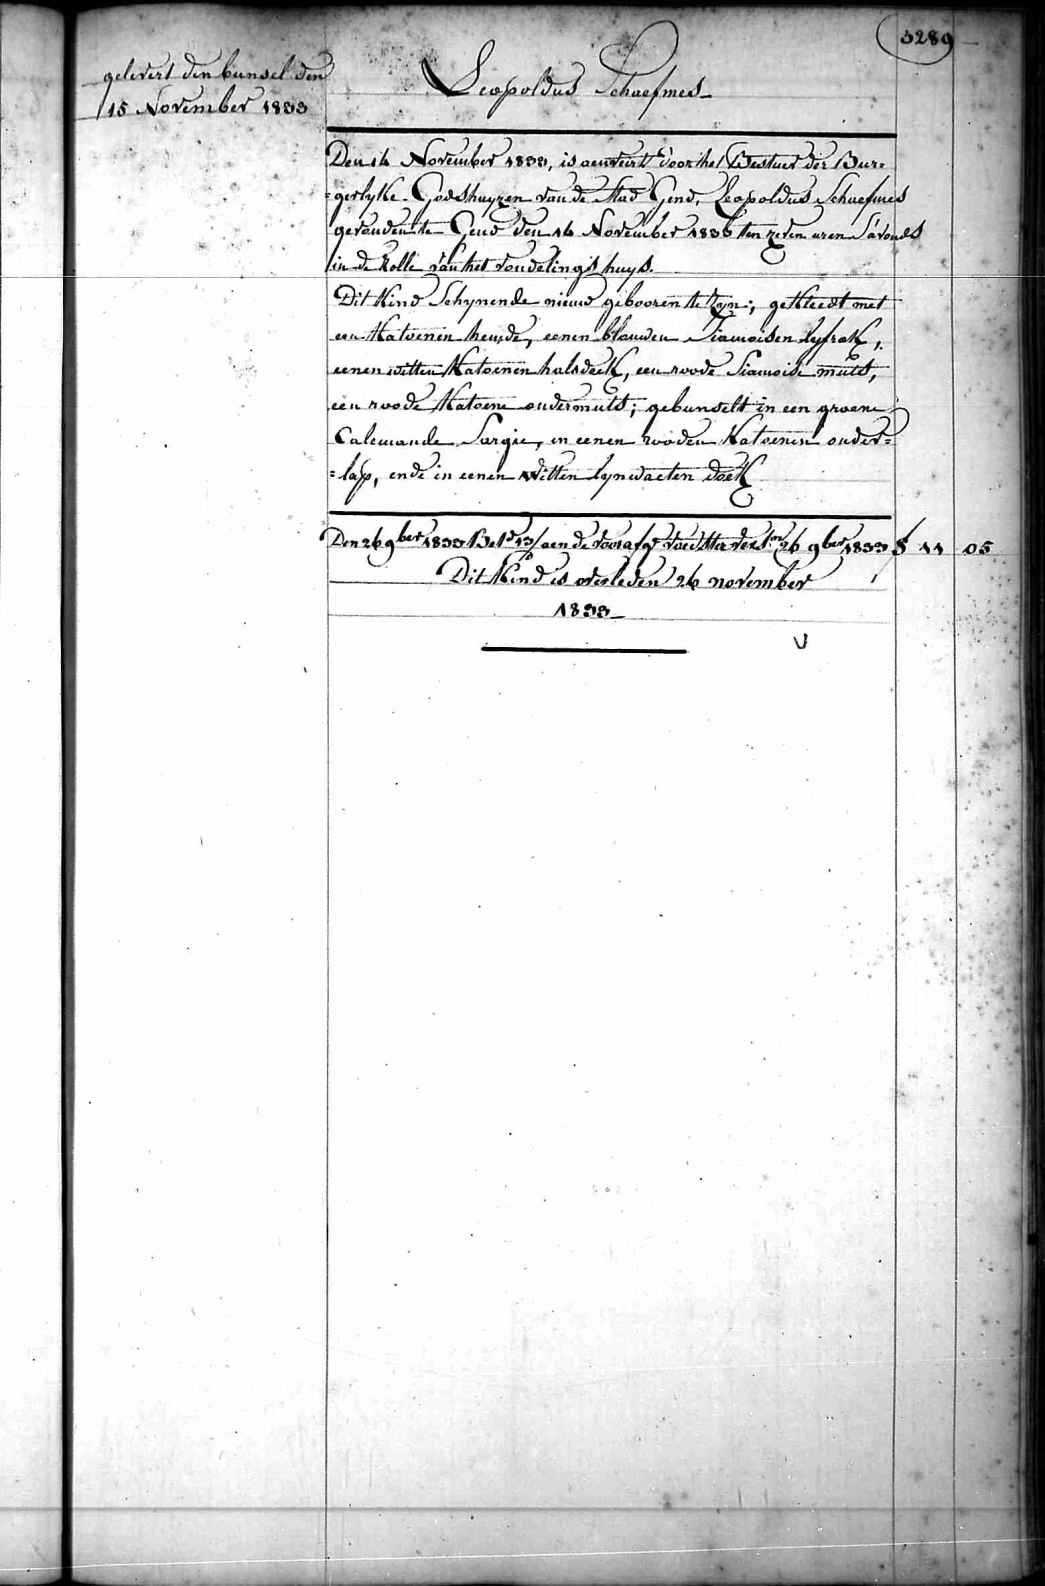 3289
gelevert den bunsel den
15 November 1833
Leopoldus Schaefmes
Den 14 November 1833, is aenveirt door het Bestuer der Bur=
=gerlyke Godshuyzen van de Stad Gend, Leopoldus Schaefmes
gevonden te Gend den 14 November 1833 ten zeven uren S'avonds
in de Rolle van het vondelings huys.
Dit Kind Schynende nieuw gebooren te zyn; gekleedt met
een Katoenen hemde, eenen blauwen Siamoisen lyfrok,
eenen witten Katoenen halsdoek, een roode Siamoise muts,
een roode Katoene ondermuts; gebunselt in een groene
Calemande Sargie, en eenen rooden Katoenen onder=
=lap, ende in eenen witten lynwaeten doek
Den 26 9ber 1833 Bet.d 13/ aen de voedster 26 9ber 1833 f 11 05
Dit Kind is overleden 26 november
1833